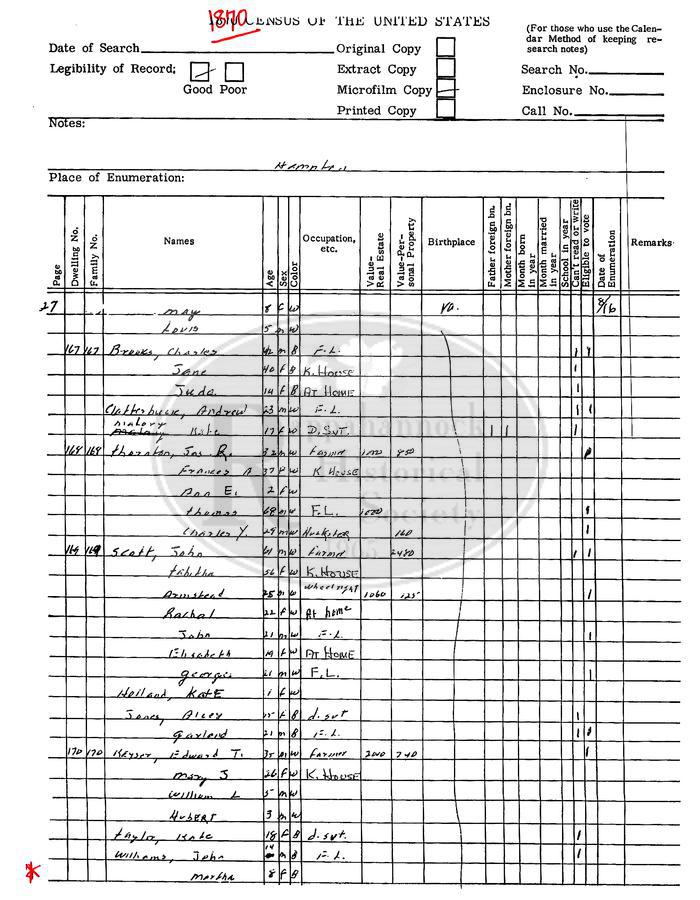 1870 CENSUS OF THE UNITED STATES
(For those who use the Calen-
dar Method of keeping re-
search notes)
Date of Search
Original Copy
Legibility of Record:
Extract Copy
Search No.
Good Poor
Microfilm Copy
Enclosure No.
Printed Copy
Call No.
Notes:
Place of Enumeration:
Page Dwelling No. Family No. Names Age Sex Color Occupation, etc. Value- Real Estate Value-Per- sonal Property Birthplace Father foreign bn. Mother foreign bn. Month born in year Month married in year School in year Can't read or write Eligible to vote Date of Enumeration Remarks
27 May 8 F W Va. 8/16
Louis 5 m W
167 167 Brooks, Charles 42 m B F.L. 1 1
Jane 40 F B K. House 1
Juda 14 F B AT HOME 1
Clatterbuck, Andrew 23 m W F.L. 1 1
Kate 17 F W D. SVT. 1 1 1
168 168 Thornton, Jas. R. 32 m W Farmer 850
Frances A 37 F W K HOUSE
Ann E. 2 F W
Thomas 68 m W F.L. 1
Charles Y. 29 m W Huckster 160 1
169 169 Scott, John 61 m W Farmer 2480 1 1
Tabitha 56 F W K. HOUSE
Armstead 25 m W wheelright 1060 125 1
Rachal 22 F W At home
John 21 m W F.L. 1
Elisabeth 19 F W AT HOME
George 21 m W F.L. 1
Holland, KATE 1 F W
Jones, Alcey F B d. svt 1
Garland 21 m B F.L. 1 1
170 170 Keyser, Edward T. 35 m W Farmer 740 1
Mary J 26 F W K. HOUSE
William L 5 m W
HUBERT 3 m W
Taylor, Kate 18 F B d. svt. 1
Williams, John 14 m B F.L. 1
Martha 8 F B
Rappahannock
Historical
Society